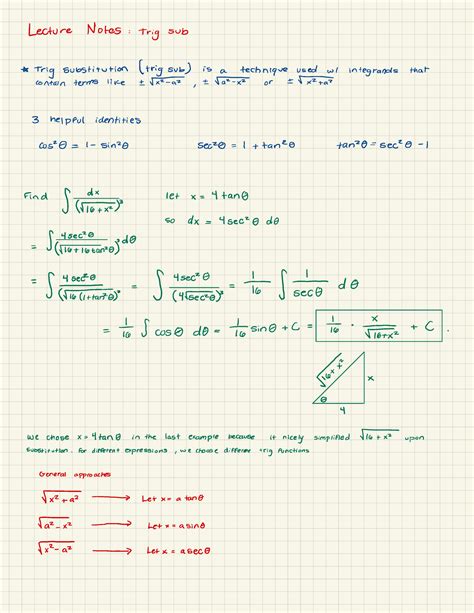 Lecture Notes: Trig sub
* Trig substitution (trig sub) is a technique used w/ integrands that
contain terms like ± √x²-a², ± √a²-x² or ± √x²+a²
3 helpful identities
cos²θ = 1 - sin²θ    sec²θ = 1 + tan²θ    tan²θ = sec²θ - 1
Find ∫ dx/(√16+x²)³    let x = 4tanθ
so dx = 4sec²θ dθ
= ∫ 4sec²θ/(√16+16tan²θ)³ dθ
= ∫ 4sec²θ/(√16(1+tan²θ))³ = ∫ 4sec²θ/(4secθ)³ = 1/16 ∫ 1/secθ dθ
= 1/16 ∫ cosθ dθ = 1/16 sinθ + C = 1/16 · x/√16+x² + C.
√16+x²
x
θ
4
We chose x = 4tanθ in the last example because it nicely simplified √16+x² upon
substitution. For different expressions, we choose different trig functions
General approaches
√x²+a² → Let x = a tanθ
√a²-x² → Let x = asinθ
√x²-a² → Let x = asecθ